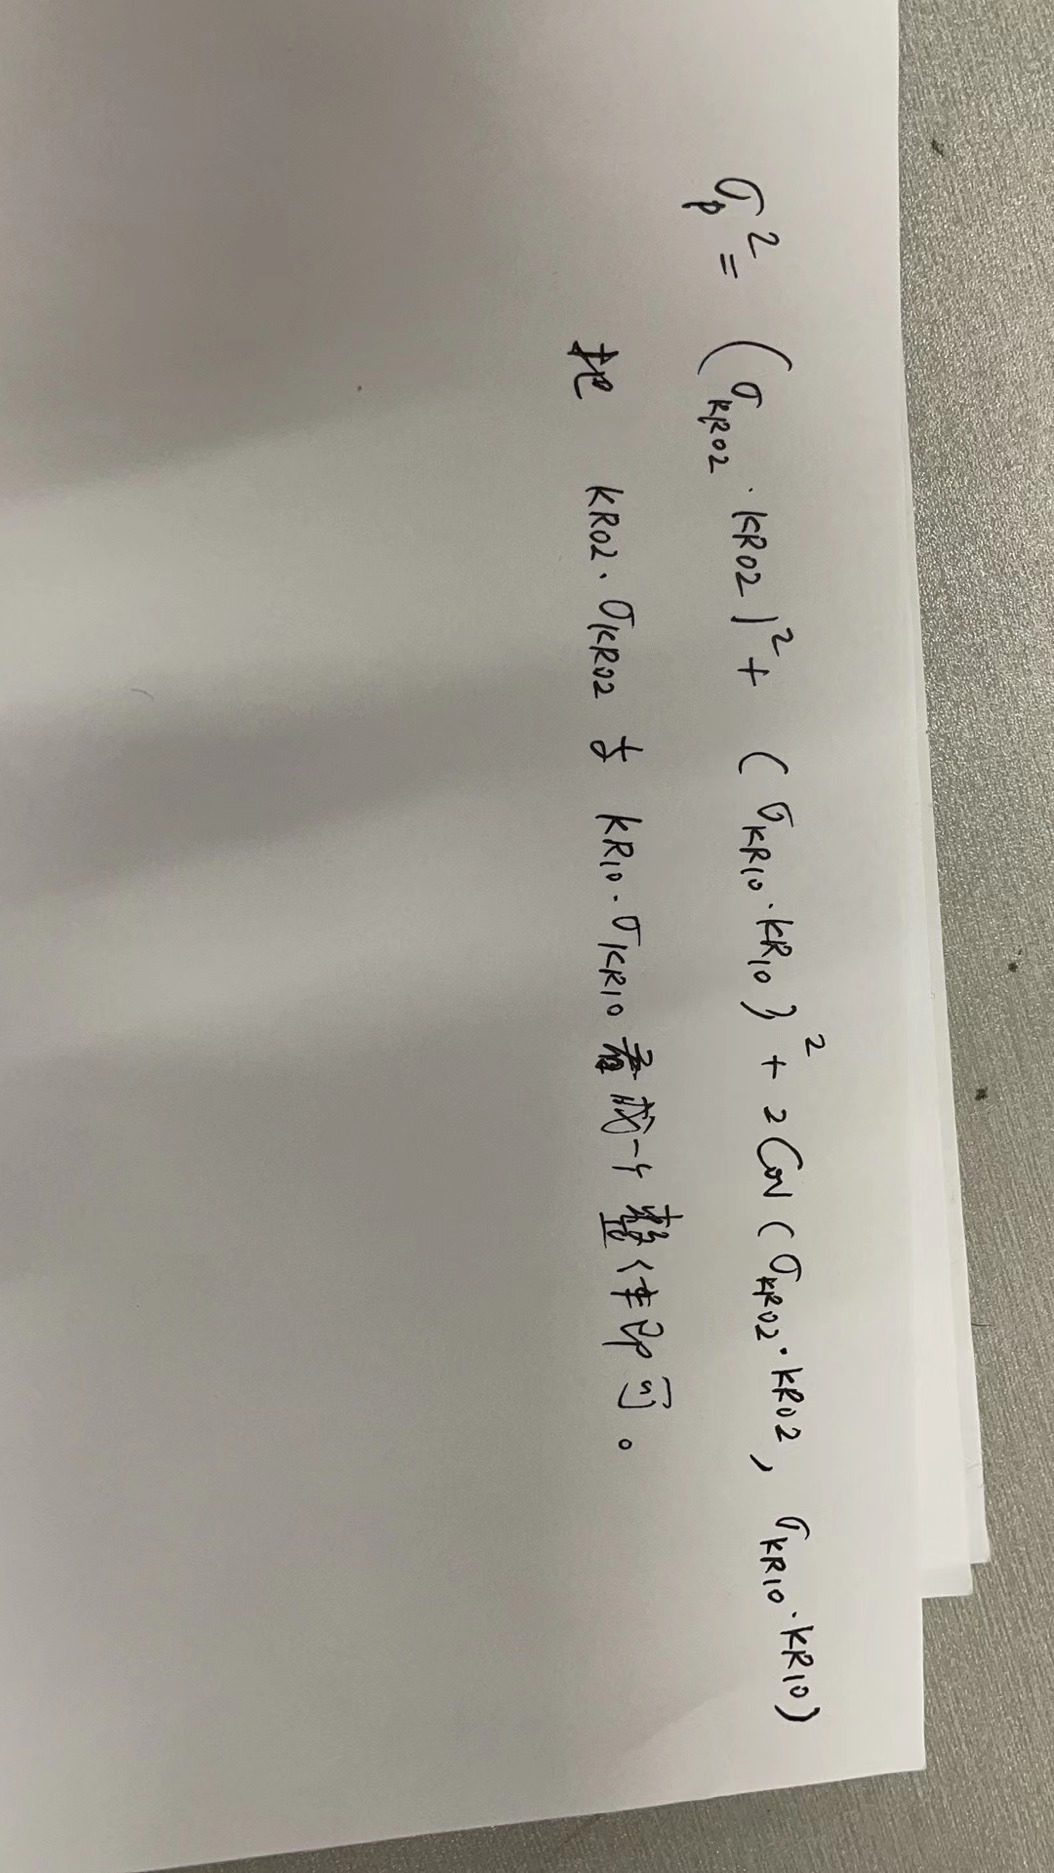 σp² = (σKR02 · KR02)² + (σKR10 · KR10)² + 2Cov(σKR02 · KR02, σKR10 · KR10)
把 KR02 · σKR02 与 KR10 · σKR10 看成一个整体即可。